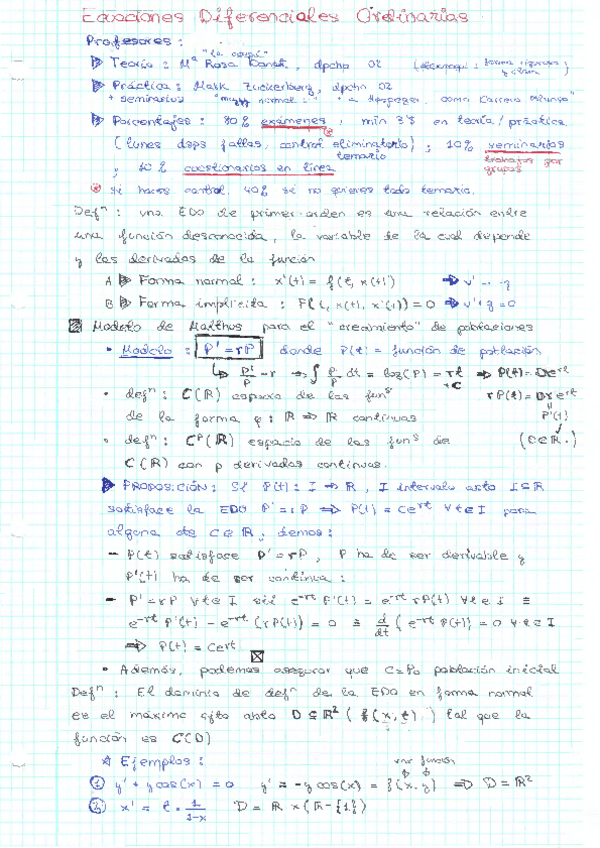 Ecuaciones Diferenciales Ordinarias
Profesores:
"la coupé"
▶ Teoría: Mª Rosa , dpcho 02
▶ Práctica: Mark Zuckerberg, dpcho 02
+ seminarios normal: + a despegar, como
▶ Porcentajes: 80% exámenes, min 3'5 en teoría/práctica
(lunes dsps fallas, control eliminatorio); 10% seminarios
temario trabajos por
y 10% cuestionarios en línea grupos
Si haces control, 40% si no quieres todo temario.
Defⁿ: una EDO de primer orden es una relación entre
una función desconocida, la variable de la cual depende
y las derivadas de la función
A ▶ Forma normal: x'(t) = f(t, x(t))
B ▶ Forma implícita: F(t, x(t), x'(t)) = 0 ⇒ v'+y=0
Modelo de Malthus para el "crecimiento" de poblaciones
• Modelo: P' = rP donde P(t) = función de población
↳ P'/P = r ⇒ ∫ P'/P dt = log(P) = rt + C ⇒ P(t) = De^rt
• defⁿ: C(ℝ) espacio de las funˢ rP(t) = Dre^rt
de la forma φ: ℝ → ℝ continuas P'(t)
• defⁿ: Cᵖ(ℝ) espacio de las funˢ de (C∈ℝ.)
C(ℝ) con p derivadas continuas.
▶ PROPOSICIÓN: Si P(t): I → ℝ, I intervalo abto I⊆ℝ
satisface la EDO P' = rP ⇒ P(t) = Ce^rt ∀t∈I para
alguna de C∈ℝ; demos:
– P(t) satisface P' = rP, P ha de ser derivable y
P'(t) ha de ser continua:
– P' = rP ∀t∈I sii e^-rt P'(t) = e^-rt rP(t) ∀t∈I ≡
e^-rt P'(t) - e^-rt (rP(t)) = 0 ≡ d/dt (e^-rt P(t)) = 0 ∀t∈I
⇒ P(t) = Ce^rt
• Además, podemos asegurar que C=P₀ población inicial
Defⁿ: El dominio de defⁿ de la EDO en forma normal
es el máximo cjto abto D⊆ℝ² (f(x,t)) tal que la
función es C(D)
Ejemplos: una función
① y' + y cos(x) = 0 y' = -y cos(x) = f(x,y) ⇒ D = ℝ²
② x' = t · 1/(1-x) D = ℝ × (ℝ-{1})